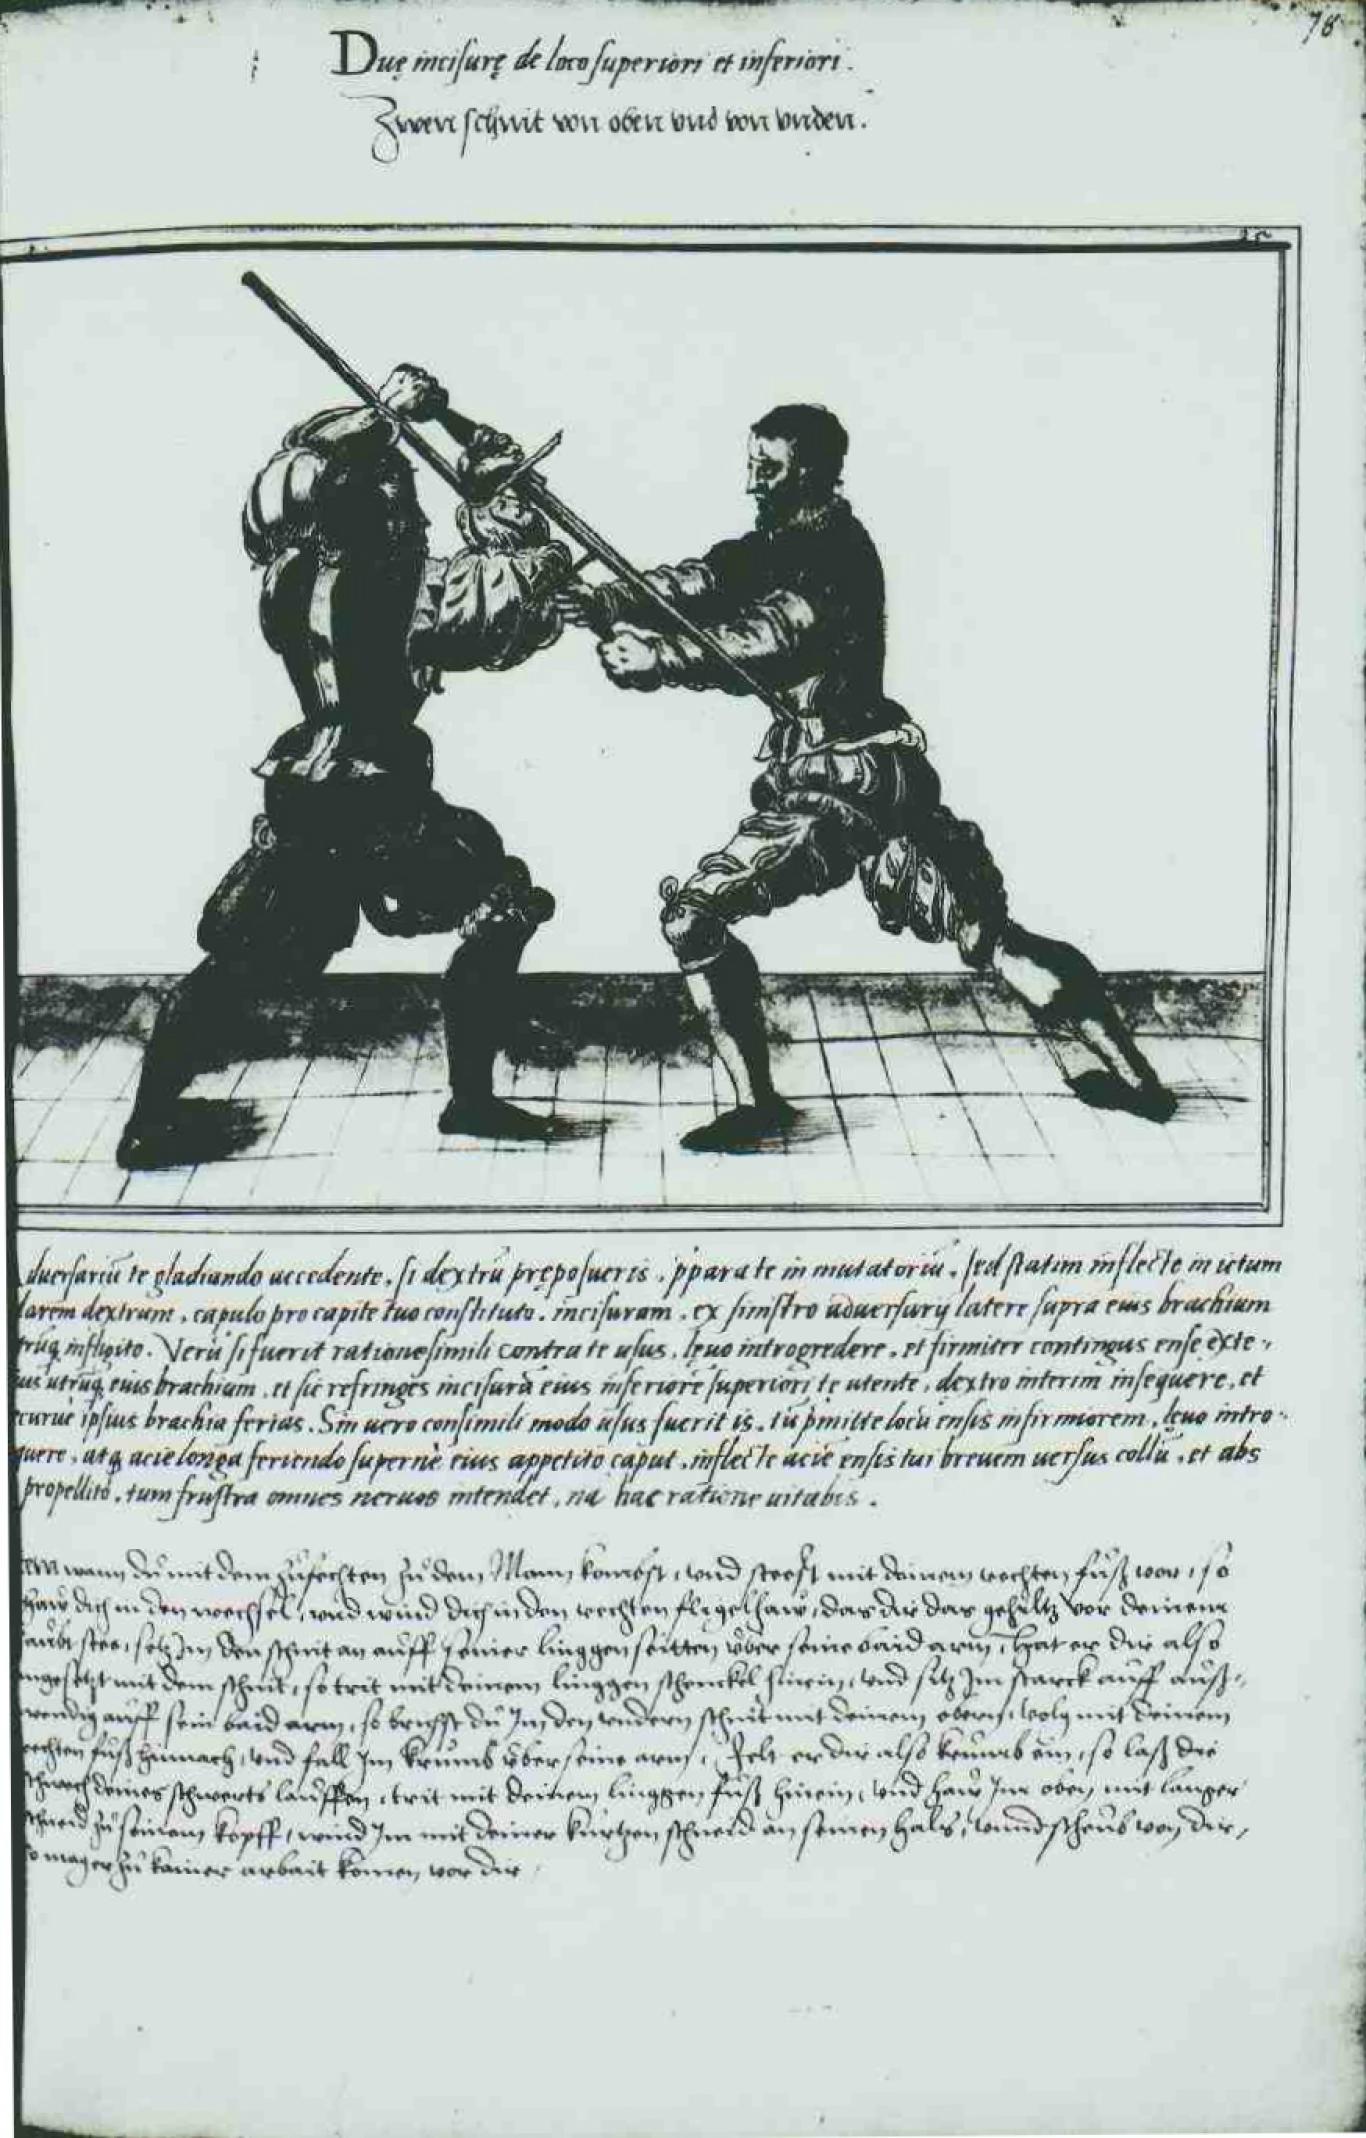 78
Duę incisurę de loco superiori et inferiori.
Zwen schnit von oben vnd von vnden.
duersariū te gladiando accedente, si dextrū pręposueris, p̱para te in mutatoriū, sed statim inflecte in ictum
larem dextrum, capulo pro capite tuo constituto, incisuram, ex sinistro aduersarij latere supra eius brachium
trūq̨ infligito. Verū si fuerit ratione simili contra te usus, lęuo introgredere, et firmiter continges ense exte-
ius utrūq̨ eius brachium, et sic refringes incisurā eius inferiorē superiori te utente, dextro interim insequere, et
curuè ipsius brachia ferias. Sin uero consimili modo usus fuerit is, tū p̱mitte locū ensis infirmiorem, lęuo intro-
quere, atq̨ acie longa feriendo supernè eius appetito caput, inflecte aciē ensis tui breuem uersus collū, et abs
propellito, tum frustra omnes neruos intendet, nā hac ratione uitabis.
wann du mit dem zufechten zu dem Mann kombst, vnd steest mit deinem rechten fuß vor, so
haw dich in den wechsel, vnd wind dich in den rechten fligelhaw, das dir das gehiltz vor deinem
haubt stee, setz Im den schnit an auff seiner linggen seitten vber seine baid arm, Hat er dir also
angesetzt mit dem schnit, so trit mit deinem linggen schenckel hinein, vnd setz Im starck auff auß-
wendig auff sein baid arm, so brichst du Im den vndern schnit mit deinem obern, volg mit deinem
rechten fuß hinnach, vnd fall Im krumb vber seine arm, Felt er dir also krumb ein, so laß die
schwech deines schwerts lauffen, trit mit deinem linggen fuß hinein, vnd haw Im oben mit langer
schneid zu seinem kopff, wind Im mit deiner kurtzen schneid an seinen hals, vnnd scheub von dir,
so mag er zu kainer arbait komen vor dir.